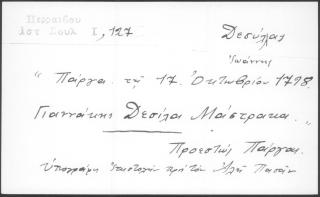 Περραιβού
Ιστ Σουλ Ι, 127
Δεσύλας
Ἰωάννης
"Πάργα τῇ 17 Ὀκτωβρίου 1798.
Γιαννάκης Δεσίλα Μάστρακα."
Προεστώς Πάργας
Ὑπογράφει ἐπιστολήν πρός τόν Ἀλῆ Πασᾶν